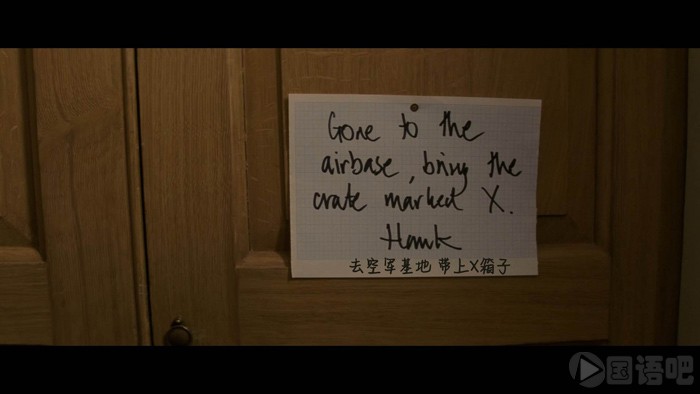 Gone to the
airbase, bring the
crate marked X.
Hawk
去空军基地 带上X箱子
国语吧